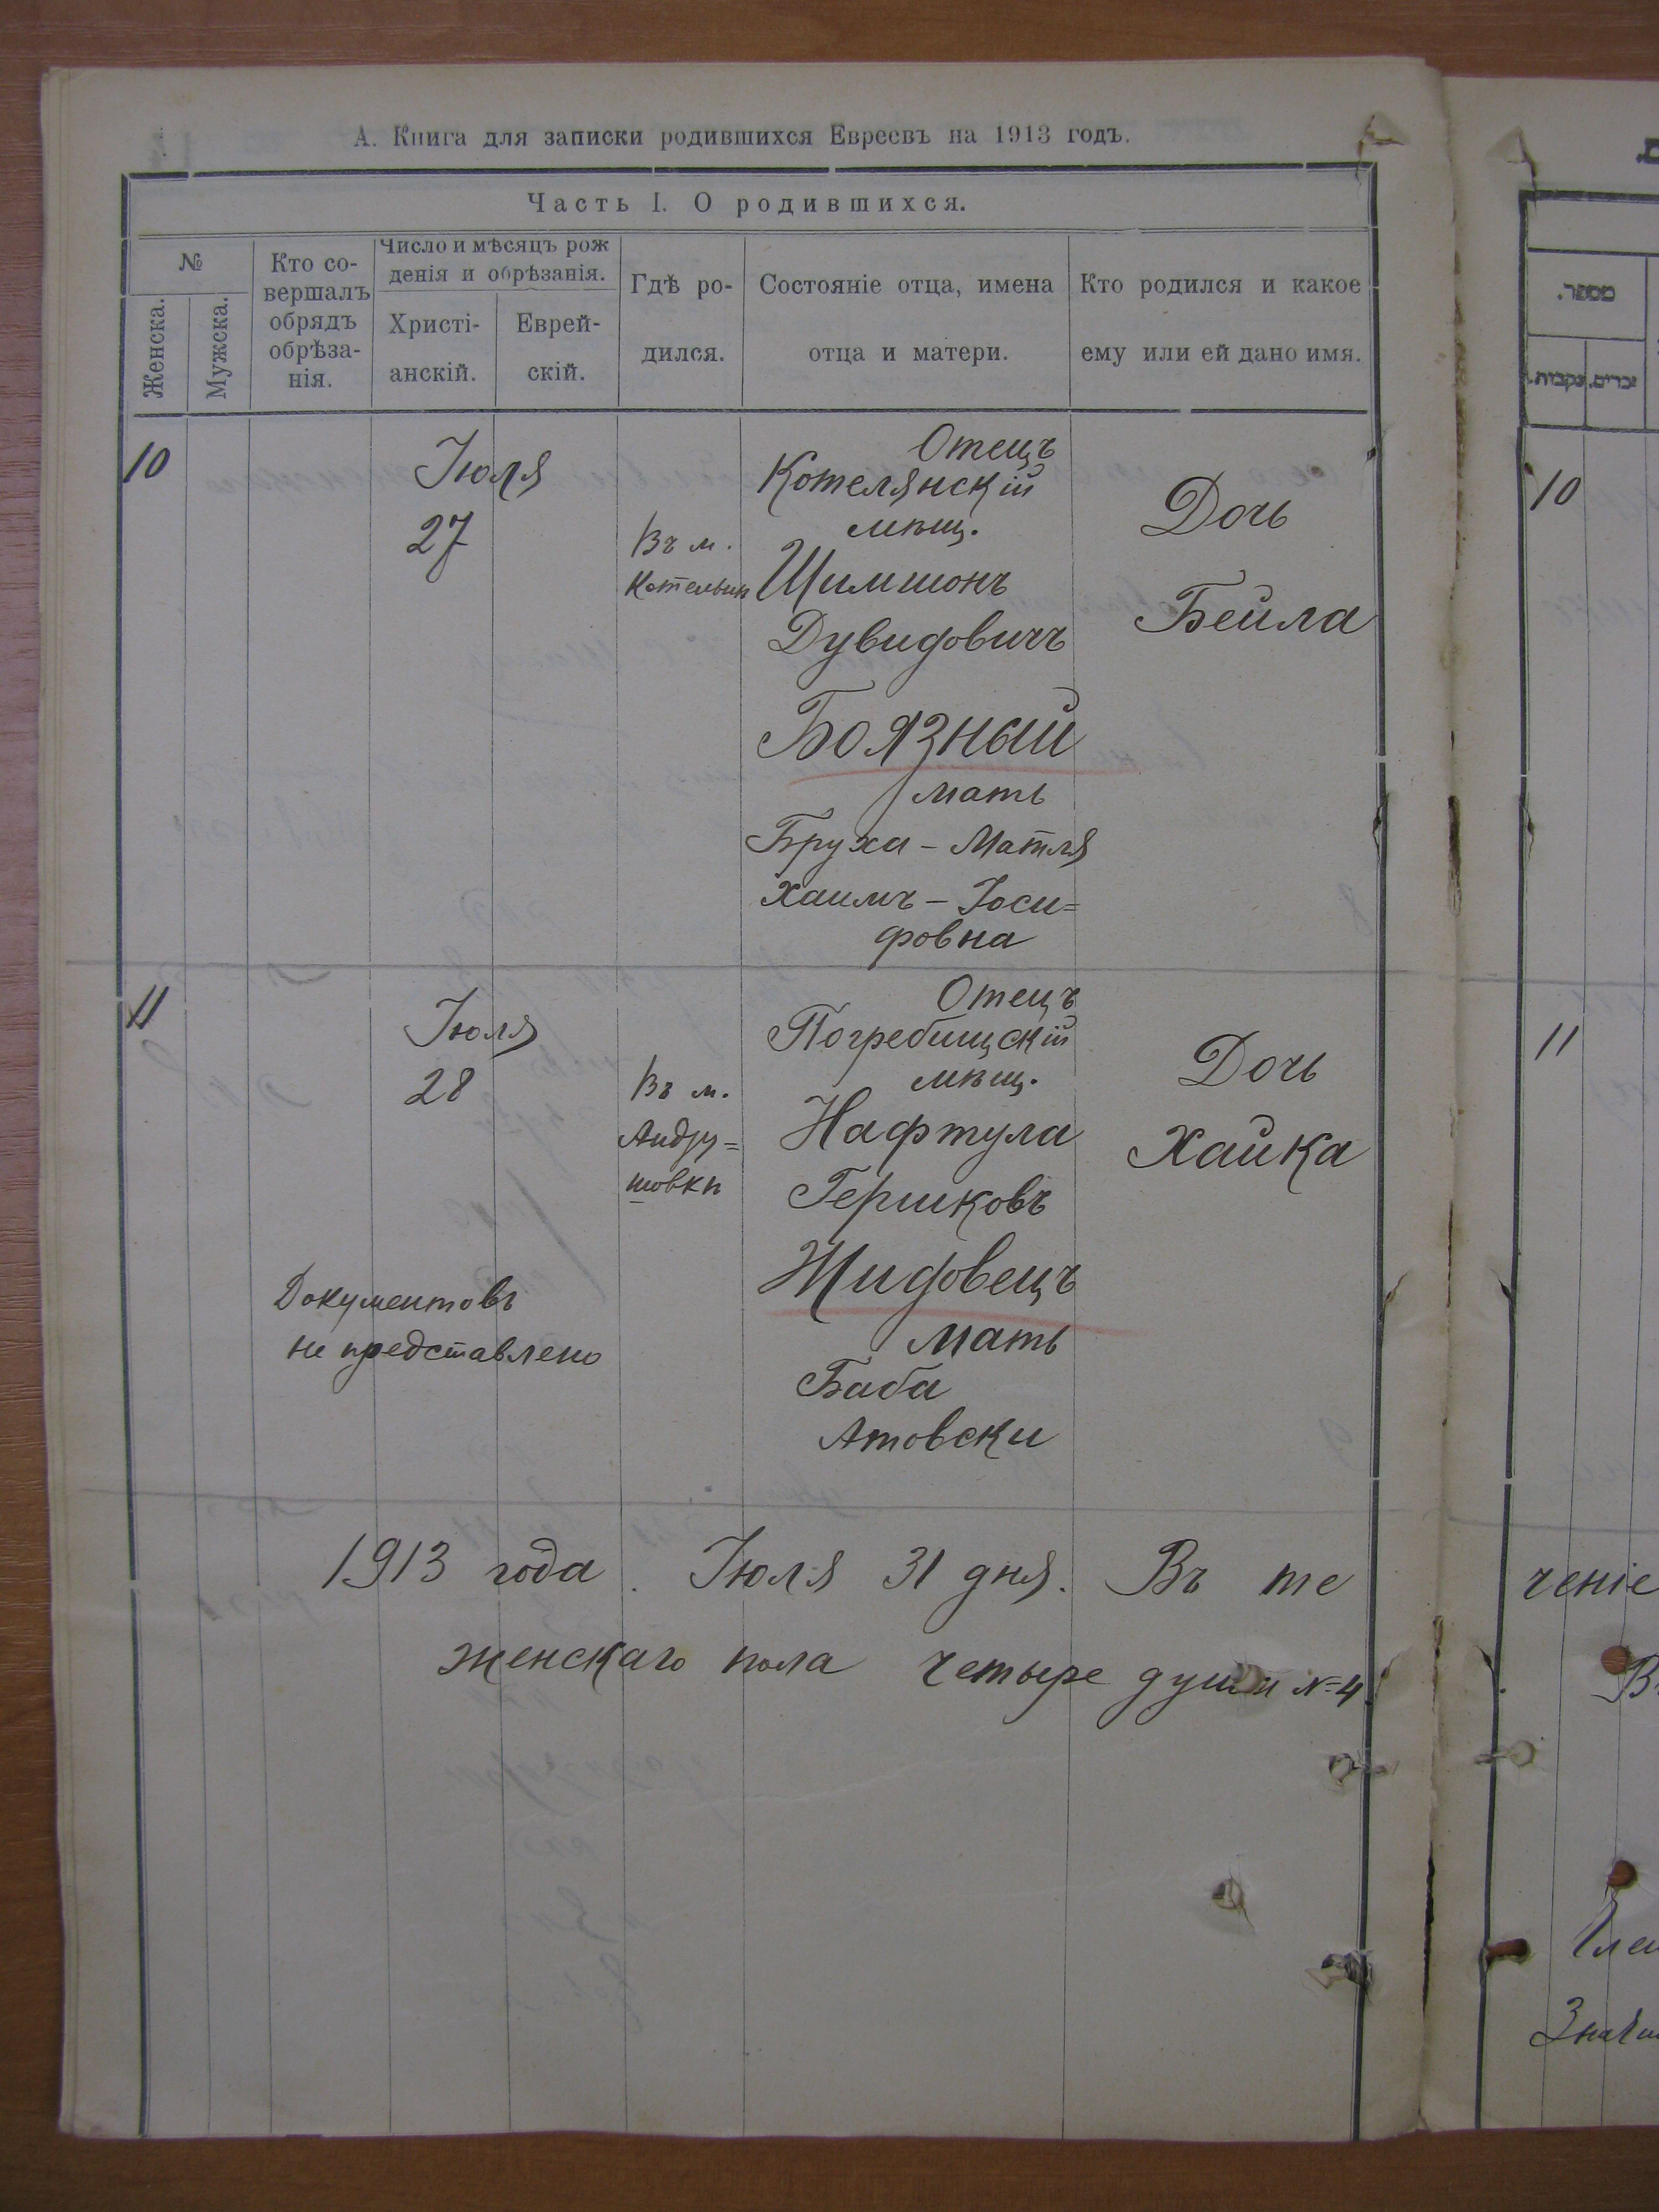 А. Книга для записки родившихся Евреевъ на 1913 годъ.
Часть I. О родившихся.
№
Женска.
Мужска.
Кто со-
вершалъ
обрядъ
обрѣза-
нія.
Число и мѣсяцъ рож
денія и обрѣзанія.
Христі-
анскій.
Еврей-
скій.
Гдѣ ро-
дился.
Состояніе отца, имена
отца и матери.
Кто родился и какое
ему или ей дано имя.
10
Іюля
27
Въ м.
Котельнѣ
Отецъ
Котелянскій
мѣщ.
Шимшонъ
Дувидовичъ
Боязный
мать
Бруха - Матля
Хаимъ - Іоси=
фовна
Дочь
Бейла
11
Іюля
28
Въ м.
Андру=
шовкѣ
Документовъ
не представлено
Отецъ
Погребищскій
мѣщ.
Нафтула
Гершковъ
Жидовецъ
мать
Баба
Атовски
Дочь
Хайка
1913 года. Іюля 31 дня. Въ те
женскаго пола четыре души №4
מספר.
נקבות.
זכרים.
10
11
ченіе